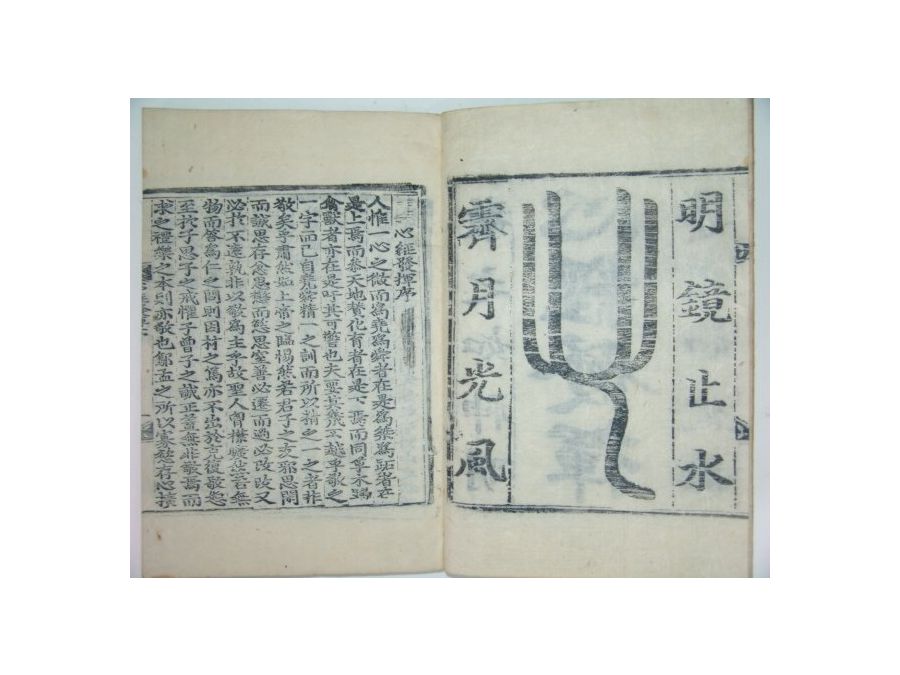 明鏡止水
霽月光風
心經發揮序
人惟一心之微而爲堯爲舜者在是爲桀爲跖者在
是上焉而參天地贊化育者在是下焉而同草木歸
禽獸者亦在是吁其可警也夫要其幾不越乎敬之
一字而已自堯舜精一之訓而所以精之一之者非
敬矣乎肅然如上帝之臨惕然若君子之友邪思閑
而誠思存忿思懲而慾思窒善必遷而過必改又
必於不遠孰非以敬爲主乎故聖人會若無
物而答爲仁之問則因材之篤亦不出於克復敬恕
至於子思子之戒懼子曾子之誠正蓋無非敬焉而
求之禮樂之本則亦敬也鄒孟之所以存心養